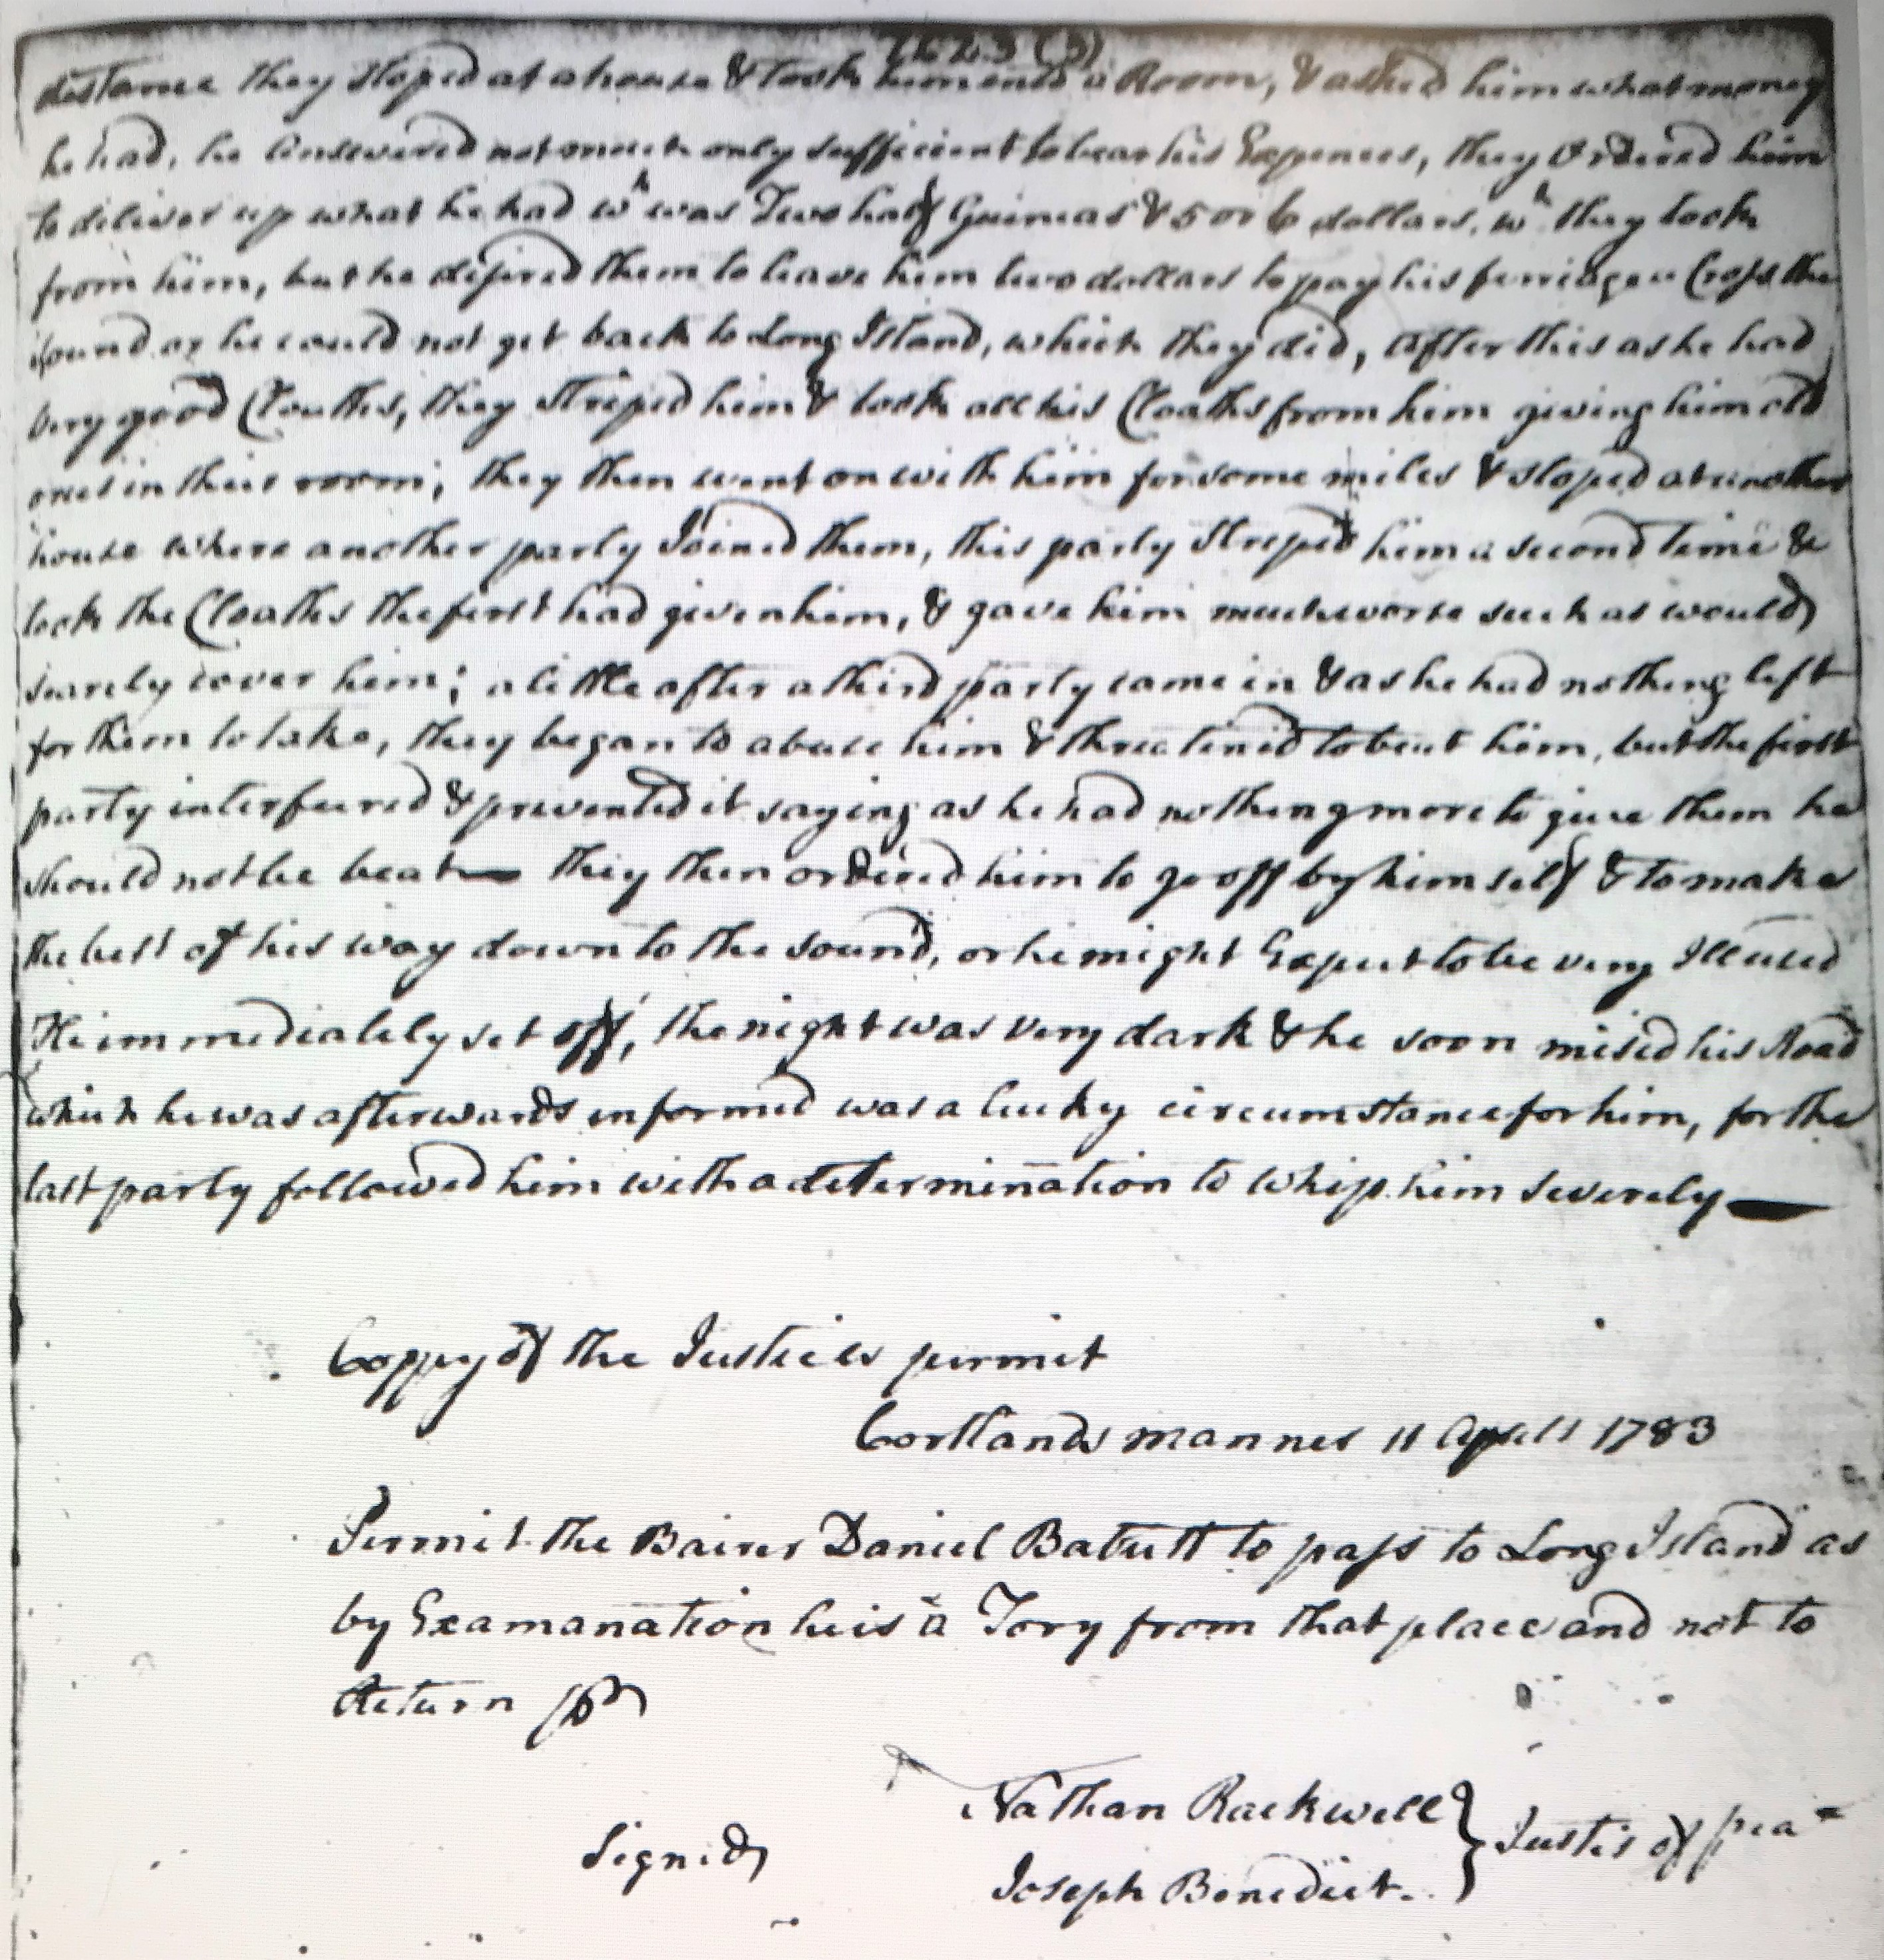 (3)
distance they stoped at a house & took him into a Room, & asked him what money
he had, he answered not much only sufficient to bear his Expences, they Ordered him
to deliver up what he had wh was Two half Guineas & 5 or 6 dollars, wh they took
from him, but he desired them to leave him two dollars to pay his ferriage a Cross the
sound or he could not get back to Long Island, which they did, after this as he had
very good Cloaths, they striped him & took all his Cloaths from him giving him old
ones in their room; they then went on with him for some miles & stoped at another
house where another party Joined them, this party Striped him a second time &
took the Cloaths the first had given him, & gave him much worse such as would
scarely cover him; a little after a third party came in & as he had nothing left
for them to take, they began to abuse him & threatined to beat him, but the first
party interfeered & prevented it saying as he had nothing more to give them he
should not be beat — they then ordered him to go off by himself & to make
the best of his way down to the sound, or he might Expect to be very Ill used
He immediately set off, the night was very dark & he soon mised his Road
which he was afterwards informed was a lucky circumstance for him, for the
last party followed him with a determination to whip him severely —
Coppy of the Justices permit
Cortlands mannes 11 Aprill 1783
Permit the Bairer Daniel Batutt to pass to Long Island as
by Examanation he is a Tory from that place and not to
Return
Signed
Nathan Rackwell
Joseph Benedict. } Justis of pea